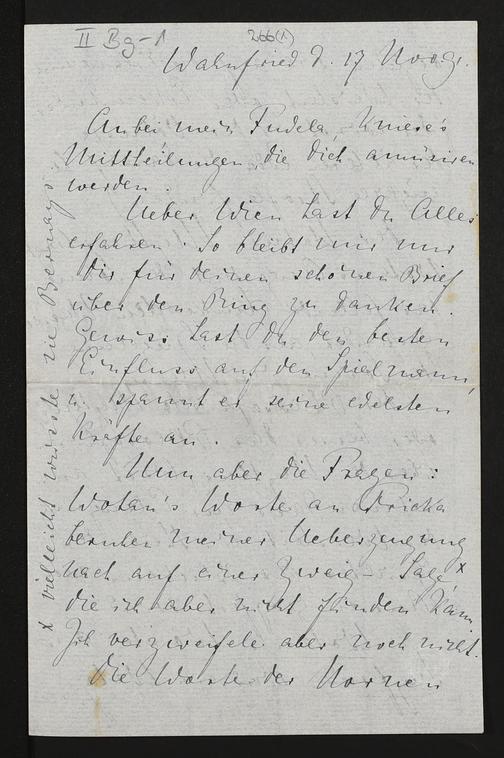 II Bg-1
266(1)
Wahnfried d. 17 Novbr.
Anbei mein Fudela, Kniese's
Mittheilungen die Dich amüsiren
werden.
Ueber Wien hast Du Alles
erfahren. So bleibt mir nur
Dir für deinen schönen Brief
über den Ring zu danken.
Gewiss hast Du den besten
Einfluss auf den Spielmann,
u. spannt er seine edelsten
Kräfte an.
Nun aber die Fragen:
Wotan's Worte an Fricka
beruhen meiner Ueberzeugung
nach auf einer Zweig-Sage x
die ich aber nicht finden kann.
Ich verzweifele aber noch nicht.
Die Worte der Nornen
x vielleicht wüsste es Bernays